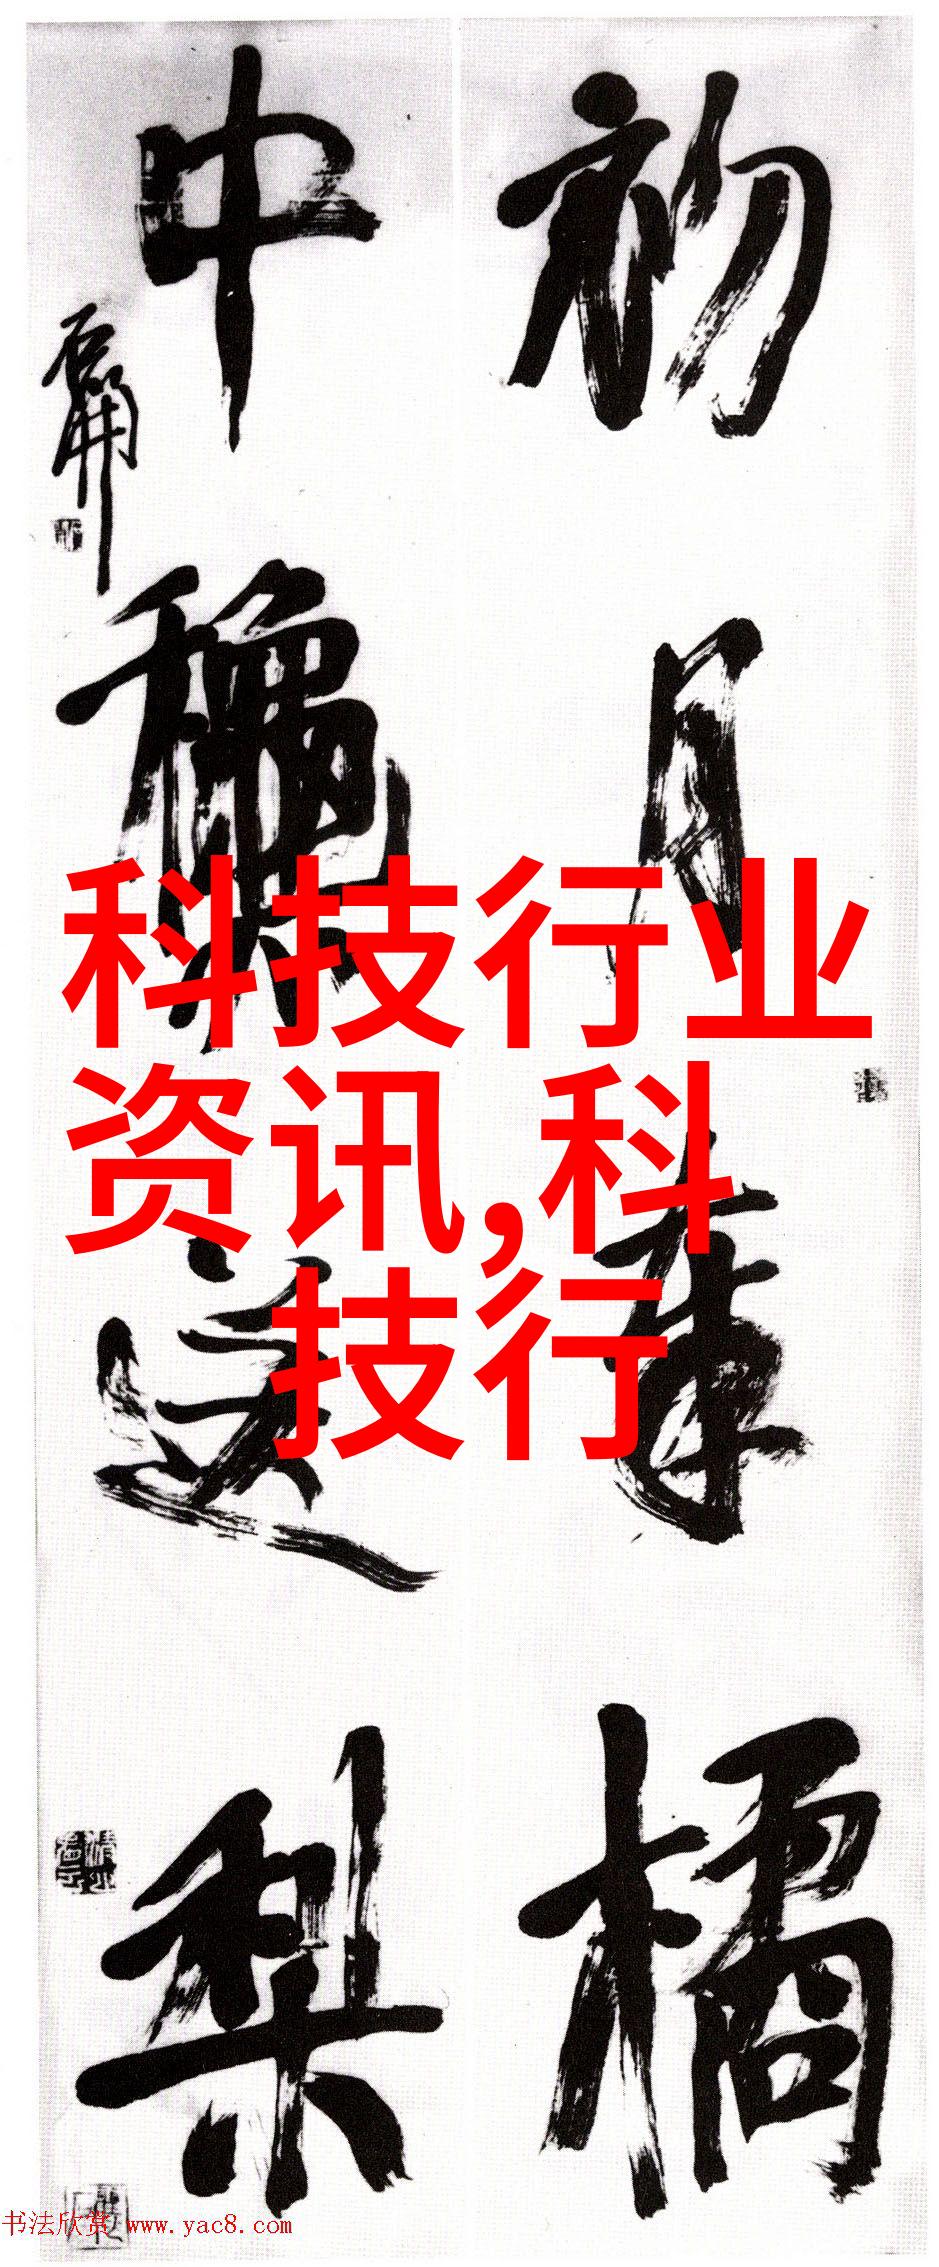 科技行业
资讯,科
技行
初月奉橘
中送梨
书法欣赏 www.yac8.com